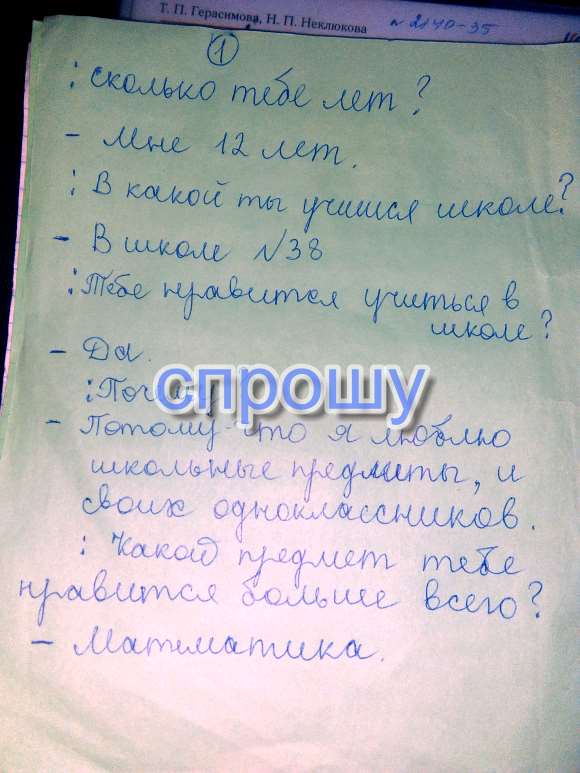 Т. П. Герасимова, Н. П. Неклюкова
№ 2140-35
1
: сколько тебе лет?
- Мне 12 лет.
: В какой ты учишся школе?
- В школе №38
: Тебе нравится учиться в
школе?
- Да.
спрошу
- Потому-что я люблю
школьные предметы, и
своих одноклассников.
: Какой предмет тебе
нравится больше всего?
- Математика.